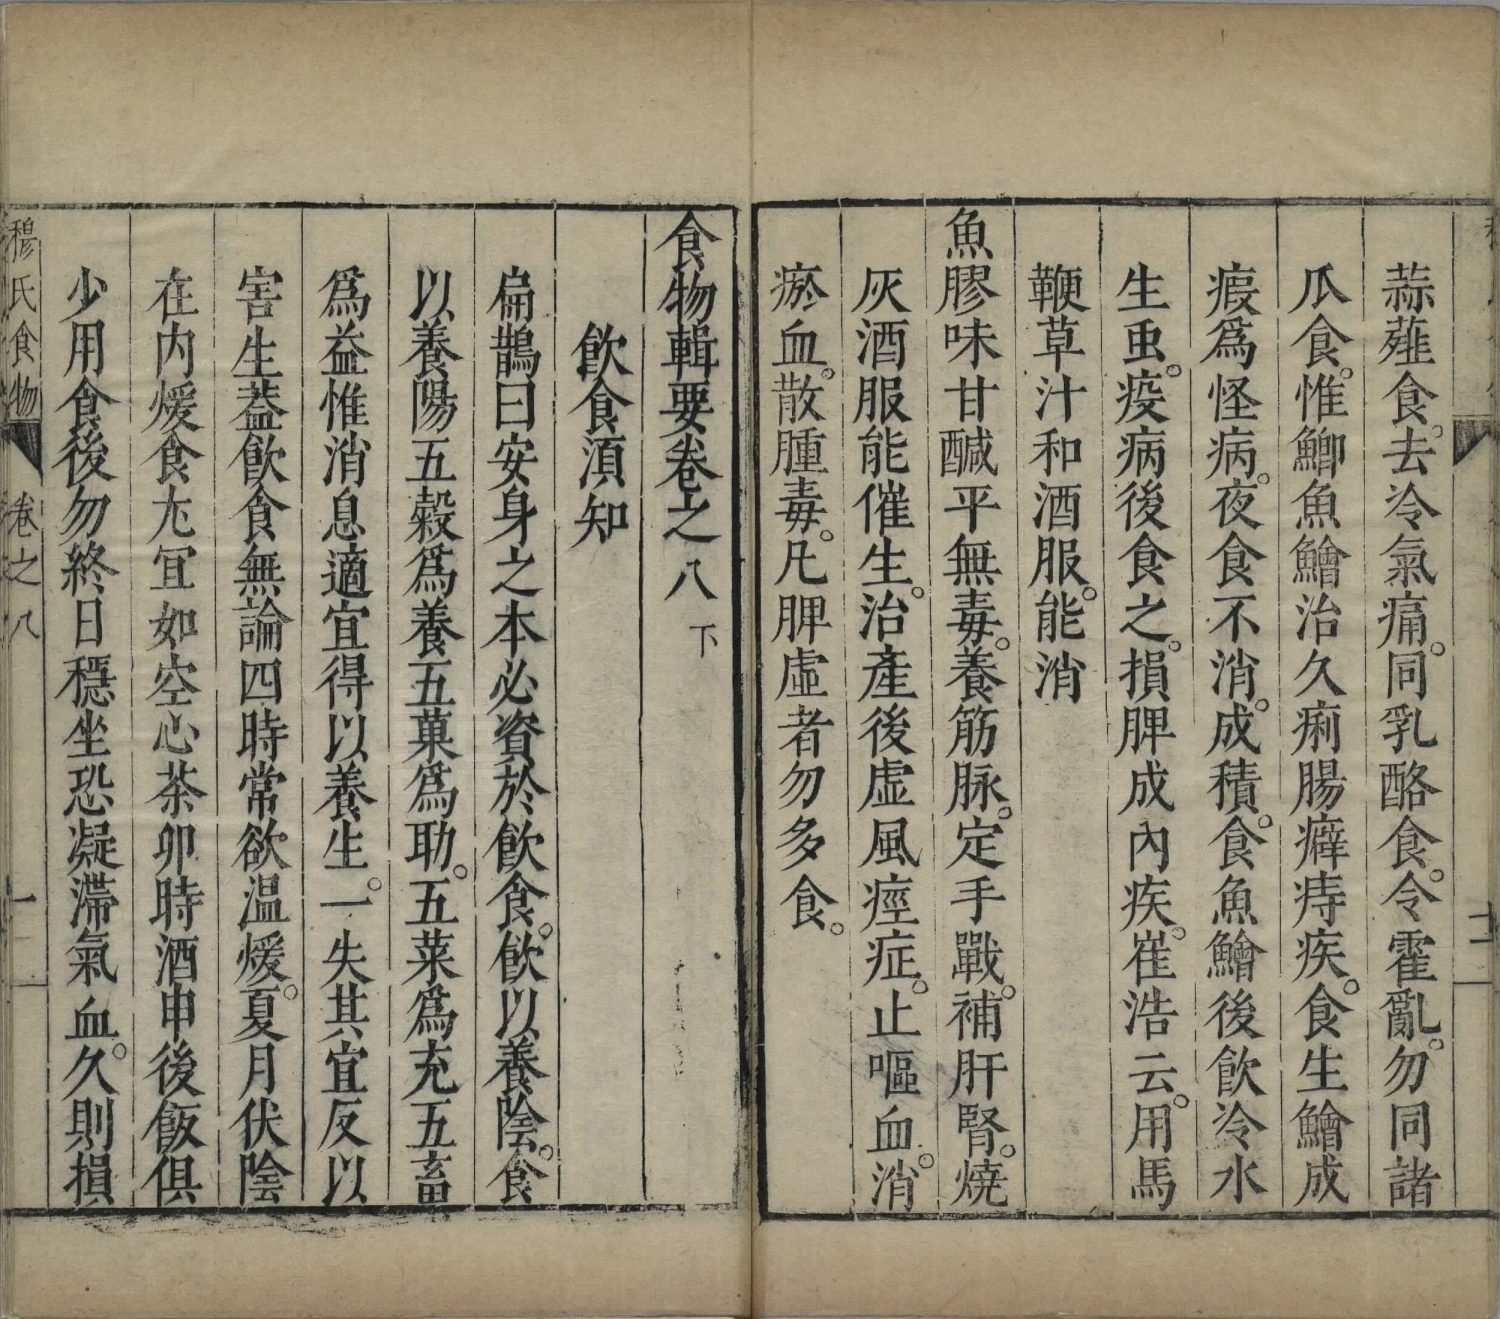 蒜薤食。去冷氣痛。同乳酪食。令霍亂。勿同諸
瓜食。惟鯽魚鱠治久痢腸癖痔疾。食生鱠成
瘕爲怪病。夜食不消。成積。食魚鱠後飲冷水
生虫。疫病後食之。損脾成內疾。崔浩云。用馬
鞭草汁和酒服。能消
魚膠味甘鹹平無毒。養筋脉。定手戰。補肝腎。燒
灰酒服能催生。治產後虛風痙症。止嘔血。消
瘀血。散腫毒。凡脾虛者勿多食。
十一
食物輯要卷之八 下
飲食須知
扁鵲曰安身之本必資於飲食。飲以養陰。食
以養陽五穀爲養五菓爲助。五菜爲充五畜
爲益惟消息適宜得以養生。一失其宜反以
害生蓋飲食無論四時常欲温煖。夏月伏陰
在内煖食尢宜如空心茶卯時酒申後飯俱
少用食後勿終日穩坐恐凝滯氣血。久則損
穆氏食物 卷之八 一